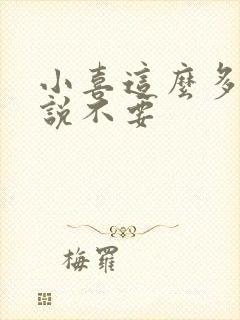 小喜這麼多
說不要
梅羅